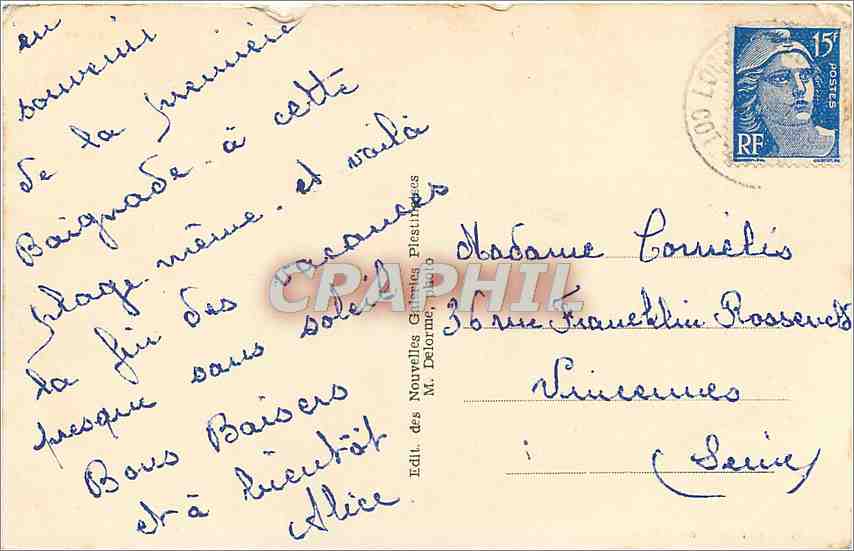 en
souvenir
de la première
Baignade à cette
plage même. et voilà
la fin des vacances
presque sans soleil
Bons Baisers
et à bientôt
Alice.
Edit. des Nouvelles Galeries Plestinaises
M. Delorme, photo
15F
POSTES
RF
Madame Cornélis
36 rue Francklin Roosevelt
Vincennes
(Seine)
CPARPHIL